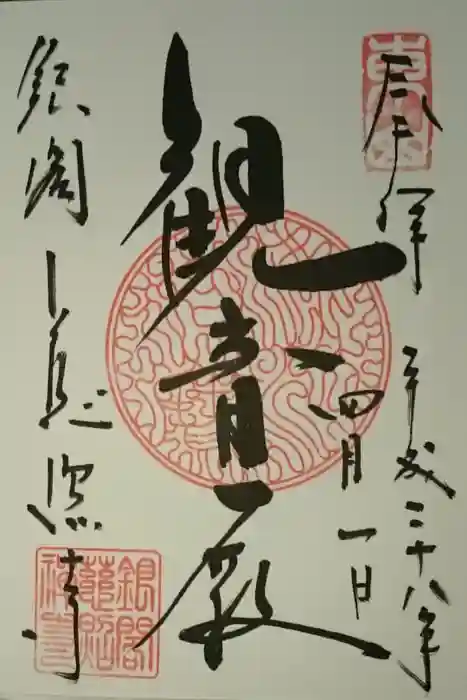 奉拝
平成二十八年
四月一日
観音殿
銀閣
慈照寺
銀閣
慈照